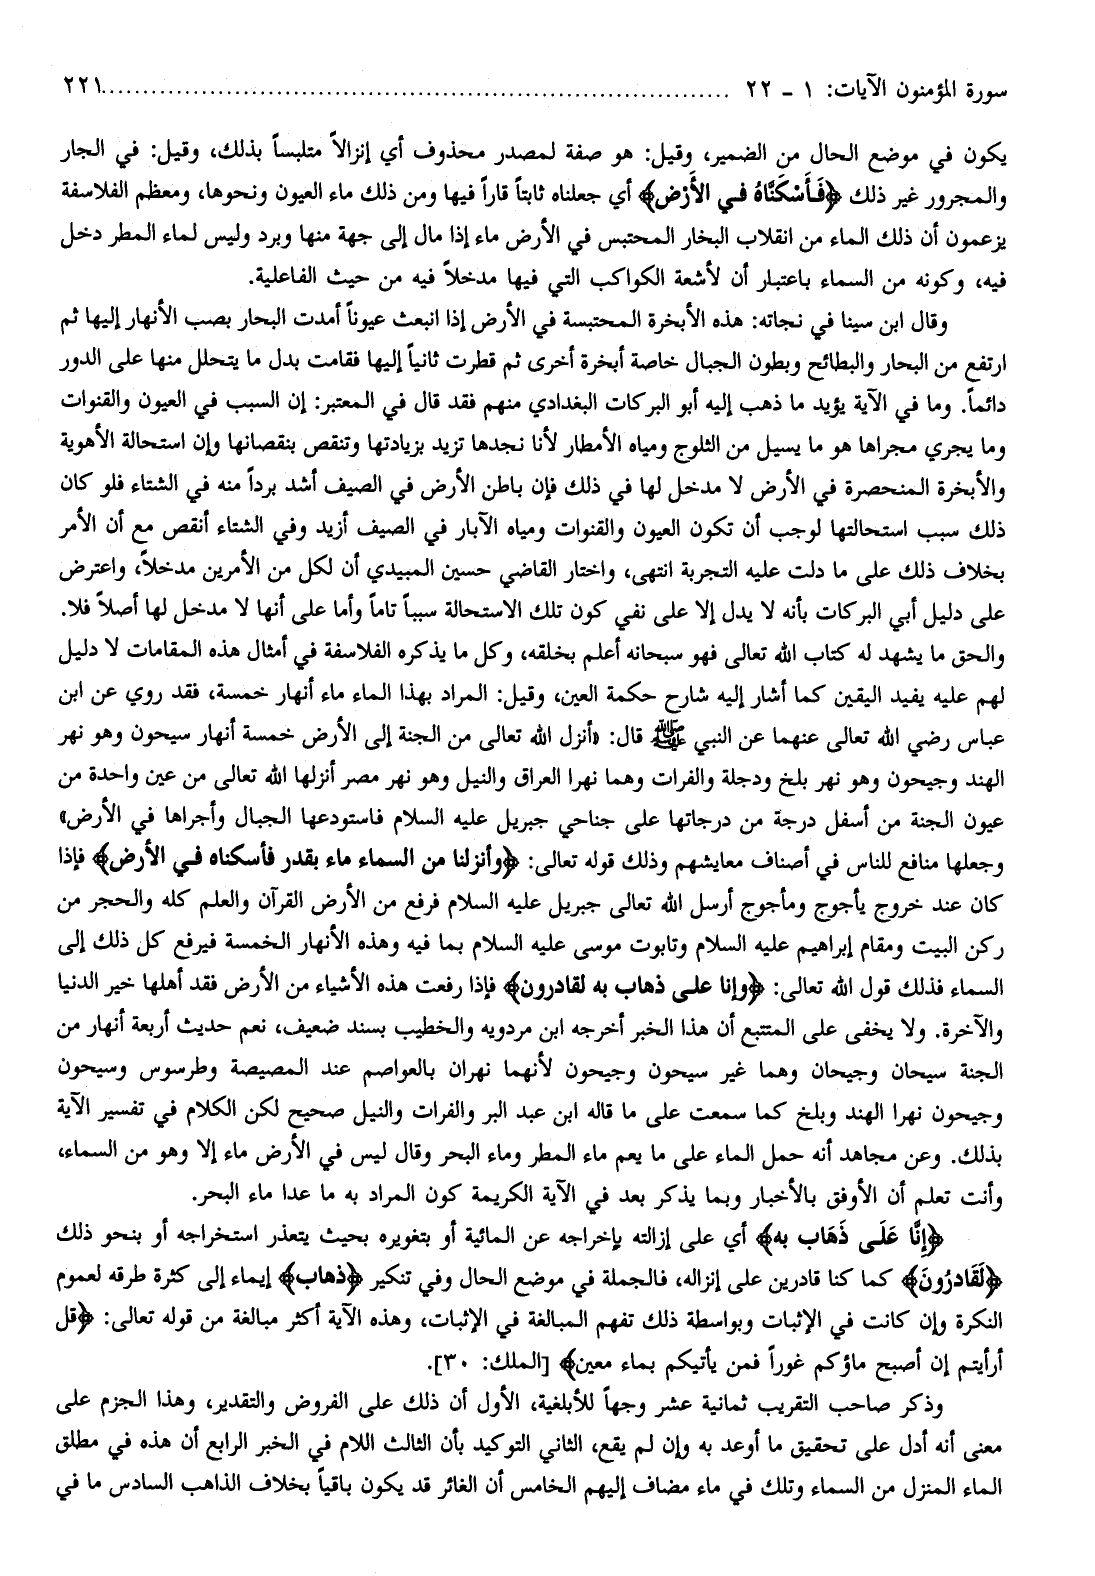 سورة المؤمنون الآيات: ١ - ٢٢ ........................................................................ ٢٢١
يكون في موضع الحال من الضمير، وقيل: هو صفة لمصدر محذوف أي إنزالاً متلبساً بذلك، وقيل: في الجار
والمجرور غير ذلك ﴿فَأَسْكَنَّاهُ في الأَرْض﴾ أي جعلناه ثابتاً قاراً فيها ومن ذلك ماء العيون ونحوها، ومعظم الفلاسفة
يزعمون أن ذلك الماء من انقلاب البخار المحتبس في الأرض ماء إذا مال إلى جهة منها وبرد وليس لماء المطر دخل
فيه، وكونه من السماء باعتبار أن لأشعة الكواكب التي فيها مدخلاً فيه من حيث الفاعلية.
وقال ابن سينا في نجاته: هذه الأبخرة المحتبسة في الأرض إذا انبعث عيوناً أمدت البحار بصب الأنهار إليها ثم
ارتفع من البحار والبطائح وبطون الجبال خاصة أبخرة أخرى ثم قطرت ثانياً إليها فقامت بدل ما يتحلل منها على الدور
دائماً. وما في الآية يؤيد ما ذهب إليه أبو البركات البغدادي منهم فقد قال في المعتبر: إن السبب في العيون والقنوات
وما يجري مجراها هو ما يسيل من الثلوج ومياه الأمطار لأنا نجدها تزيد بزيادتها وتنقص بنقصانها وإن استحالة الأهوية
والأبخرة المنحصرة في الأرض لا مدخل لها في ذلك فإن باطن الأرض في الصيف أشد برداً منه في الشتاء فلو كان
ذلك سبب استحالتها لوجب أن تكون العيون والقنوات ومياه الآبار في الصيف أزيد وفي الشتاء أنقص مع أن الأمر
بخلاف ذلك على ما دلت عليه التجربة انتهى، واختار القاضي حسين المبيدي أن لكل من الأمرين مدخلاً، واعترض
على دليل أبي البركات بأنه لا يدل إلا على نفي كون تلك الاستحالة سبباً تاماً وأما على أنها لا مدخل لها أصلاً فلا.
والحق ما يشهد له كتاب الله تعالى فهو سبحانه أعلم بخلقه، وكل ما يذكره الفلاسفة في أمثال هذه المقامات لا دليل
لهم عليه يفيد اليقين كما أشار إليه شارح حكمة العين، وقيل: المراد بهذا الماء ماء أنهار خمسة، فقد روي عن ابن
عباس رضي الله تعالى عنهما عن النبي ﷺ قال: «أنزل الله تعالى من الجنة إلى الأرض خمسة أنهار سيحون وهو نهر
الهند وجيحون وهو نهر بلخ ودجلة والفرات وهما نهرا العراق والنيل وهو نهر مصر أنزلها الله تعالى من عين واحدة من
عيون الجنة من أسفل درجة من درجاتها على جناحي جبريل عليه السلام فاستودعها الجبال وأجراها في الأرض»
وجعلها منافع للناس في أصناف معايشهم وذلك قوله تعالى: ﴿وأنزلنا من السماء ماء بقدر فأسكناه في الأرض﴾ فإذا
كان عند خروج يأجوج ومأجوج أرسل الله تعالى جبريل عليه السلام فرفع من الأرض القرآن والعلم كله والحجر من
ركن البيت ومقام إبراهيم عليه السلام وتابوت موسى عليه السلام بما فيه وهذه الأنهار الخمسة فيرفع كل ذلك إلى
السماء فذلك قول الله تعالى: ﴿وإنا على ذهاب به لقادرون﴾ فإذا رفعت هذه الأشياء من الأرض فقد أهلها خير الدنيا
والآخرة. ولا يخفى على المتتبع أن هذا الخبر أخرجه ابن مردويه والخطيب بسند ضعيف، نعم حديث أربعة أنهار من
الجنة سيحان وجيحان وهما غير سيحون وجيحون لأنهما نهران بالعواصم عند المصيصة وطرسوس وسيحون
وجيحون نهرا الهند وبلخ كما سمعت على ما قاله ابن عبد البر والفرات والنيل صحيح لكن الكلام في تفسير الآية
بذلك. وعن مجاهد أنه حمل الماء على ما يعم ماء المطر وماء البحر وقال ليس في الأرض ماء إلا وهو من السماء،
وأنت تعلم أن الأوفق بالأخبار وبما يذكر بعد في الآية الكريمة كون المراد به ما عدا ماء البحر.
﴿إنَّا عَلَى ذَهَاب به﴾ أي على إزالته بإخراجه عن المائية أو بتغويره بحيث يتعذر استخراجه أو بنحو ذلك
﴿لَقَادرُونَ﴾ كما كنا قادرين على إنزاله، فالجملة في موضع الحال وفي تنكير ﴿ذهاب﴾ إيماء إلى كثرة طرقه لعموم
النكرة وإن كانت في الإثبات وبواسطة ذلك تفهم المبالغة في الإثبات، وهذه الآية أكثر مبالغة من قوله تعالى: ﴿قل
أرأيتم إن أصبح ماؤكم غوراً فمن يأتيكم بماء معين﴾ [الملك: ٣٠].
وذكر صاحب التقريب ثمانية عشر وجهاً للأبلغية، الأول أن ذلك على الفروض والتقدير، وهذا الجزم على
معنى أنه أدل على تحقيق ما أوعد به وإن لم يقع، الثاني التوكيد بأن الثالث اللام في الخبر الرابع أن هذه في مطلق
الماء المنزل من السماء وتلك في ماء مضاف إليهم الخامس أن الغائر قد يكون باقياً بخلاف الذاهب السادس ما في